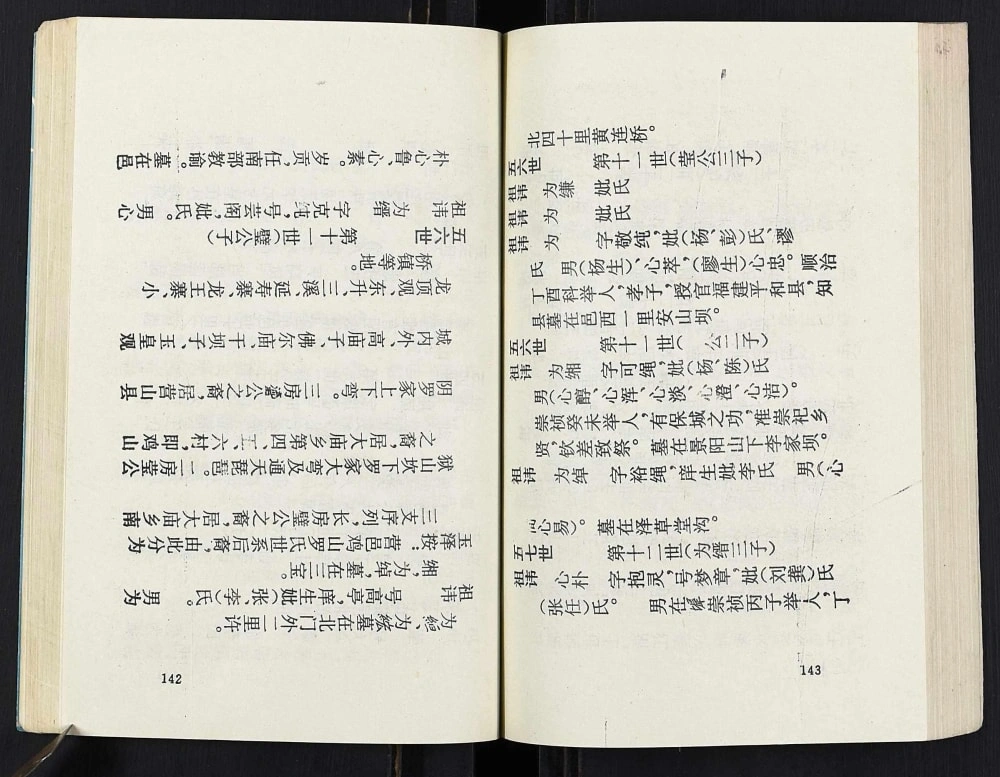 祖讳　号高亭，庠生妣（张、李）氏。　男为
玉泽按：营邑鸡山罗氏世系后裔，由此分为
三支序列，长房璧公之裔，居大庙乡南
狱山坎下罗家大弯及通天琵琶。二房莹公
之裔，居大庙乡第四、五、六村，即鸡山
阴罗家上下弯。三房公之裔，居营山县
城内外、高庙子、佛尔庙、干坝子、玉皇观
龙顶观、东升、三溪、延寿寨、龙王寨、小
桥镇等地。
五六世　第十一世（璧公子）
祖讳　为缙　字克纯，号芸阁，妣氏。男心
朴心鲁、心素。岁贡，任南部教谕。墓在邑
142
北四十里黄连桥。
五六世　第十一世（莹公三子）
祖讳　为缣　妣氏
祖讳　为　妣氏
祖讳　为　字敬纯，妣（杨、彭）氏、廖
氏　男（杨生）、心萃，（廖生）心忠。顺治
丁酉科举人，孝子，授官福建平和县，知
县墓在邑西一里安山坝。
五六世　第十一世（　公二子）
祖讳　为缃　字可绳，妣（杨、陈）氏
男（心醇、心浑、心淡、心澄、心洁）。
崇祯癸未举人，有保城之功，准崇祀乡
贤，钦差致祭。墓在景阳山下李家坝。
祖讳　为绰　字裕绳，庠生妣李氏　男（心
心易）。墓在泽草堂沟。
五七世　第十二世（为缙三子）
祖讳　心朴　字抱灵，号梦章，妣（刘龚）氏
（张任）氏。　男在　崇祯丙子举人，丁
143